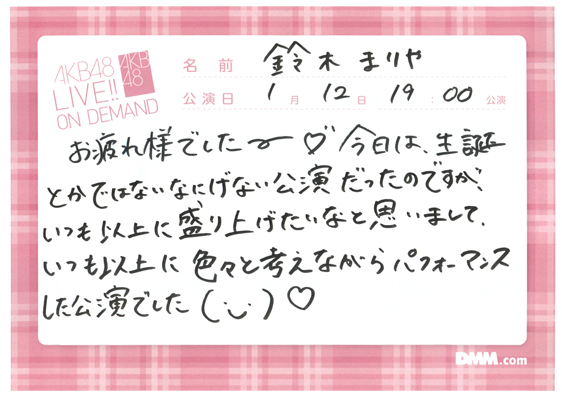 AKB48
LIVE!!
ON DEMAND
AKB
48
名前 鈴木まりや
公演日 1月12日19:00公演
お疲れ様でしたー♡今日は、生誕
とかではないなにげない公演だったのですが、
いつも以上に盛り上げたいなと思いまして、
いつも以上に色々と考えながらパフォーマンス
した公演でした(¨̮)♡
DMM.com